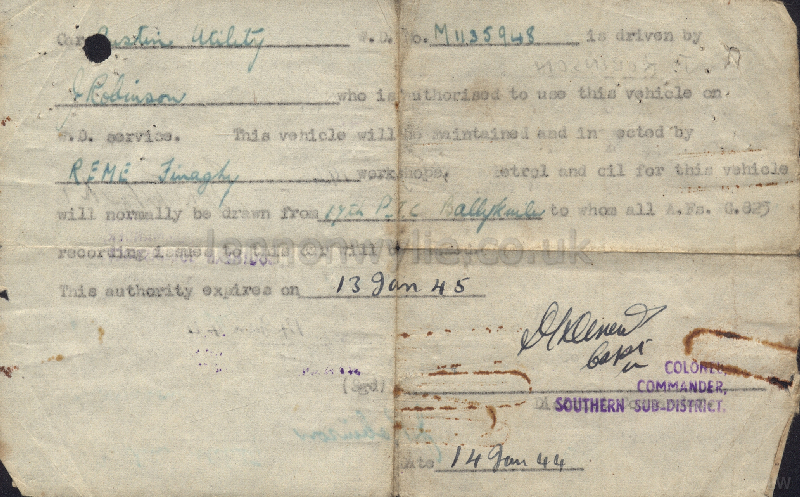 Car Austin Utility W.D. No. M1135948 is driven by
J Robinson who is authorised to use this vehicle on
W.D. service. This vehicle will be maintained and inspected by
REME Finaghy workshops. Petrol and oil for this vehicle
will normally be drawn from 17th P.T.C Ballykinler to whom all A.Fs. G.823
recording issues to this car
lennonwylie.co.uk
This authority expires on 13 Jan 45
Capt
(Sgd)
COLONEL,
COMMANDER,
SOUTHERN SUB-DISTRICT.
Robinson
Date 14 Jan 44